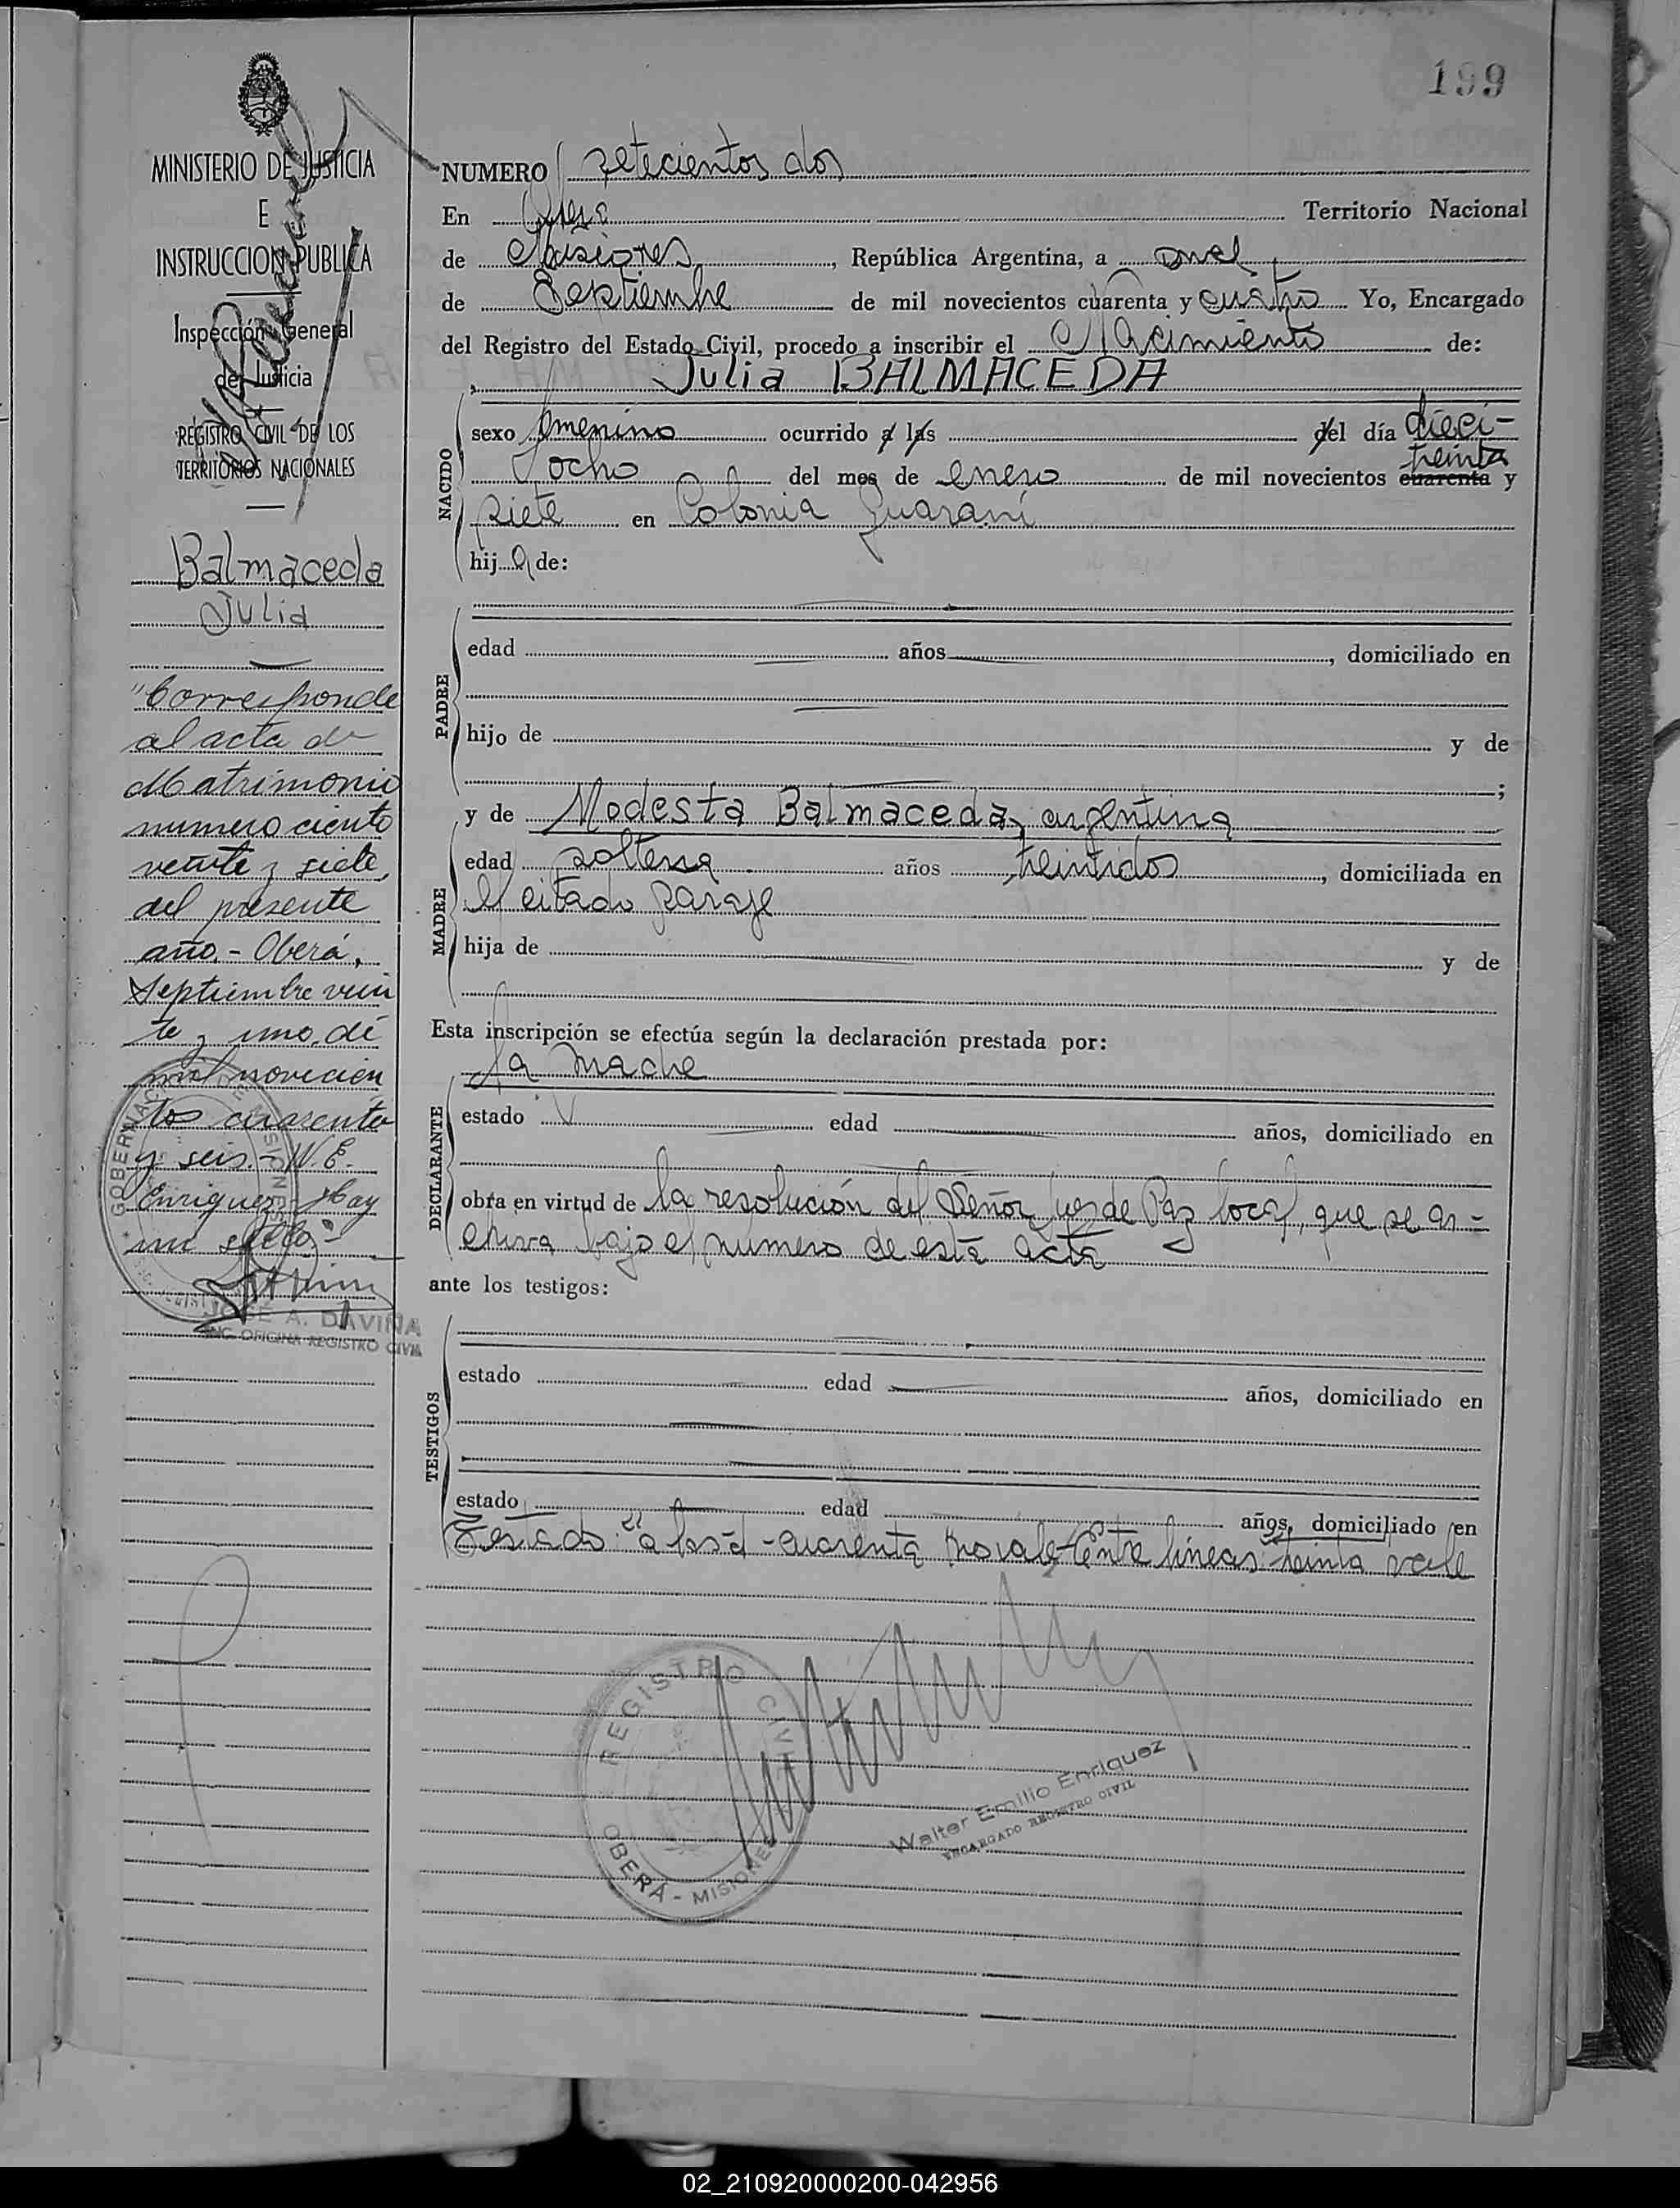 199
MINISTERIO DE JUSTICIA
E
INSTRUCCION PUBLICA
Inspección General
de Justicia
REGISTRO CIVIL DE LOS
TERRITORIOS NACIONALES
Balmaceda
Julia
"Corresponde
al acta de
Matrimonio
numero ciento
veinte y siete,
del presente
año.- Oberá,
Septiembre vein
te y uno, de
mil novecien
tos cuarenta
y seis.- W.E.
Enriquez - Hay
un sello.-
JOSÉ A. DAVIÑA
ENC. OFICINA REGISTRO CIVIL
NUMERO setecientos dos
En Oberá Territorio Nacional
de Misiones, República Argentina, a once
de Septiembre de mil novecientos cuarenta y cuatro Yo, Encargado
del Registro del Estado Civil, procedo a inscribir el Nacimiento de:
Julia BALMACEDA
NACIDO
sexo femenino ocurrido a las del día dieci-
treinta
ocho del mes de enero de mil novecientos cuarenta y
siete en Colonia Guaraní
hija de:
PADRE
edad años, domiciliado en
hijo de y de
;
y de Modesta Balmaceda, argentina
MADRE
edad soltera años, treintidos, domiciliada en
el citado paraje
hija de y de
Esta inscripción se efectúa según la declaración prestada por:
la madre
DECLARANTE
estado edad años, domiciliado en
obra en virtud de la resolución del Señor Juez de Paz local, que se ar-
chiva bajo el número de esta acta
ante los testigos:
TESTIGOS
estado edad años, domiciliado en
estado edad años, domiciliado en
Testado: "a las-d-cuarenta no vale-Entre líneas: treinta vale
REGISTRO CIVIL
OBERÁ - MISIONES
Walter Emilio Enriquez
ENCARGADO REGISTRO CIVIL
02_210920000200-042956